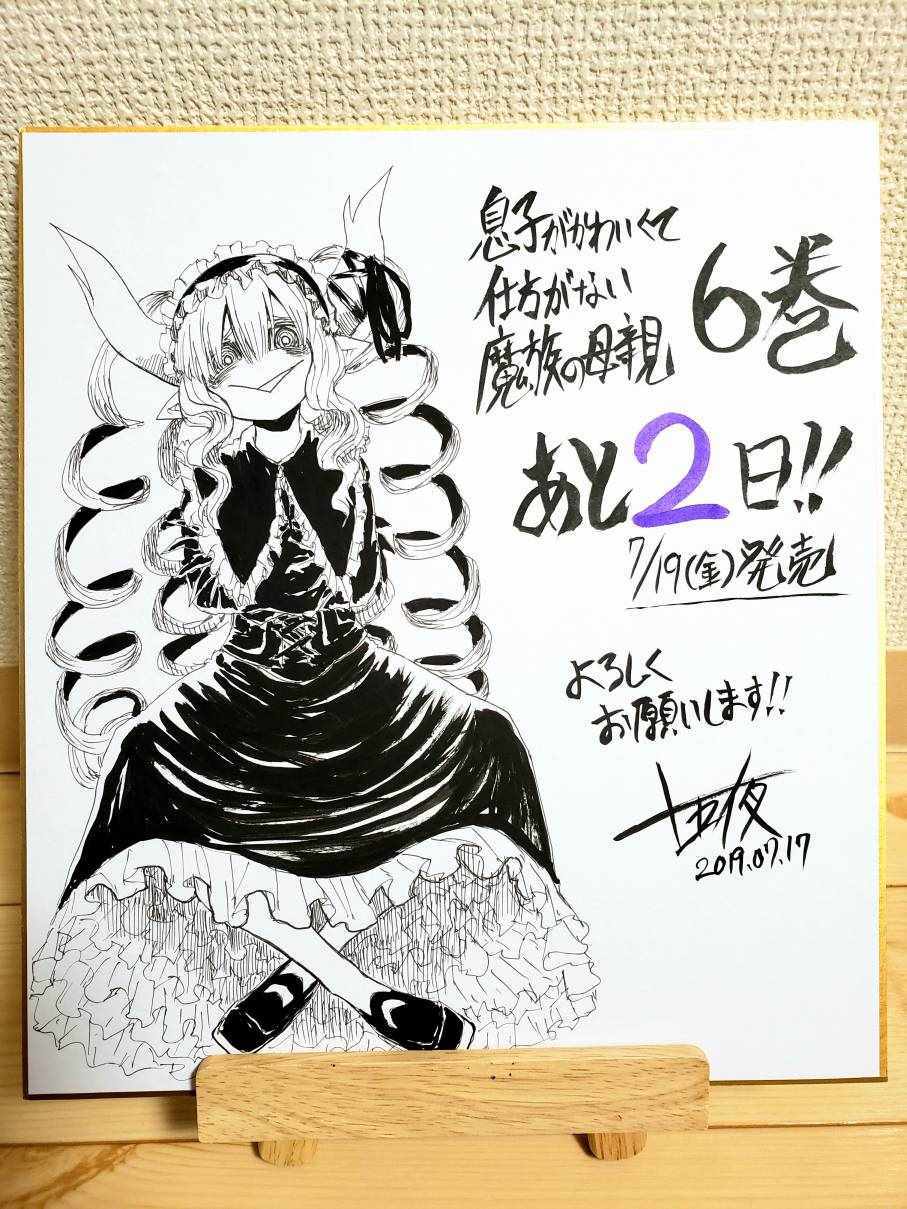 息子がかわいくて
仕方がない
魔族の母親
6巻
あと2日!!
7/19(金)発売
よろしく
お願いします!!
十五夜
2019.07.17